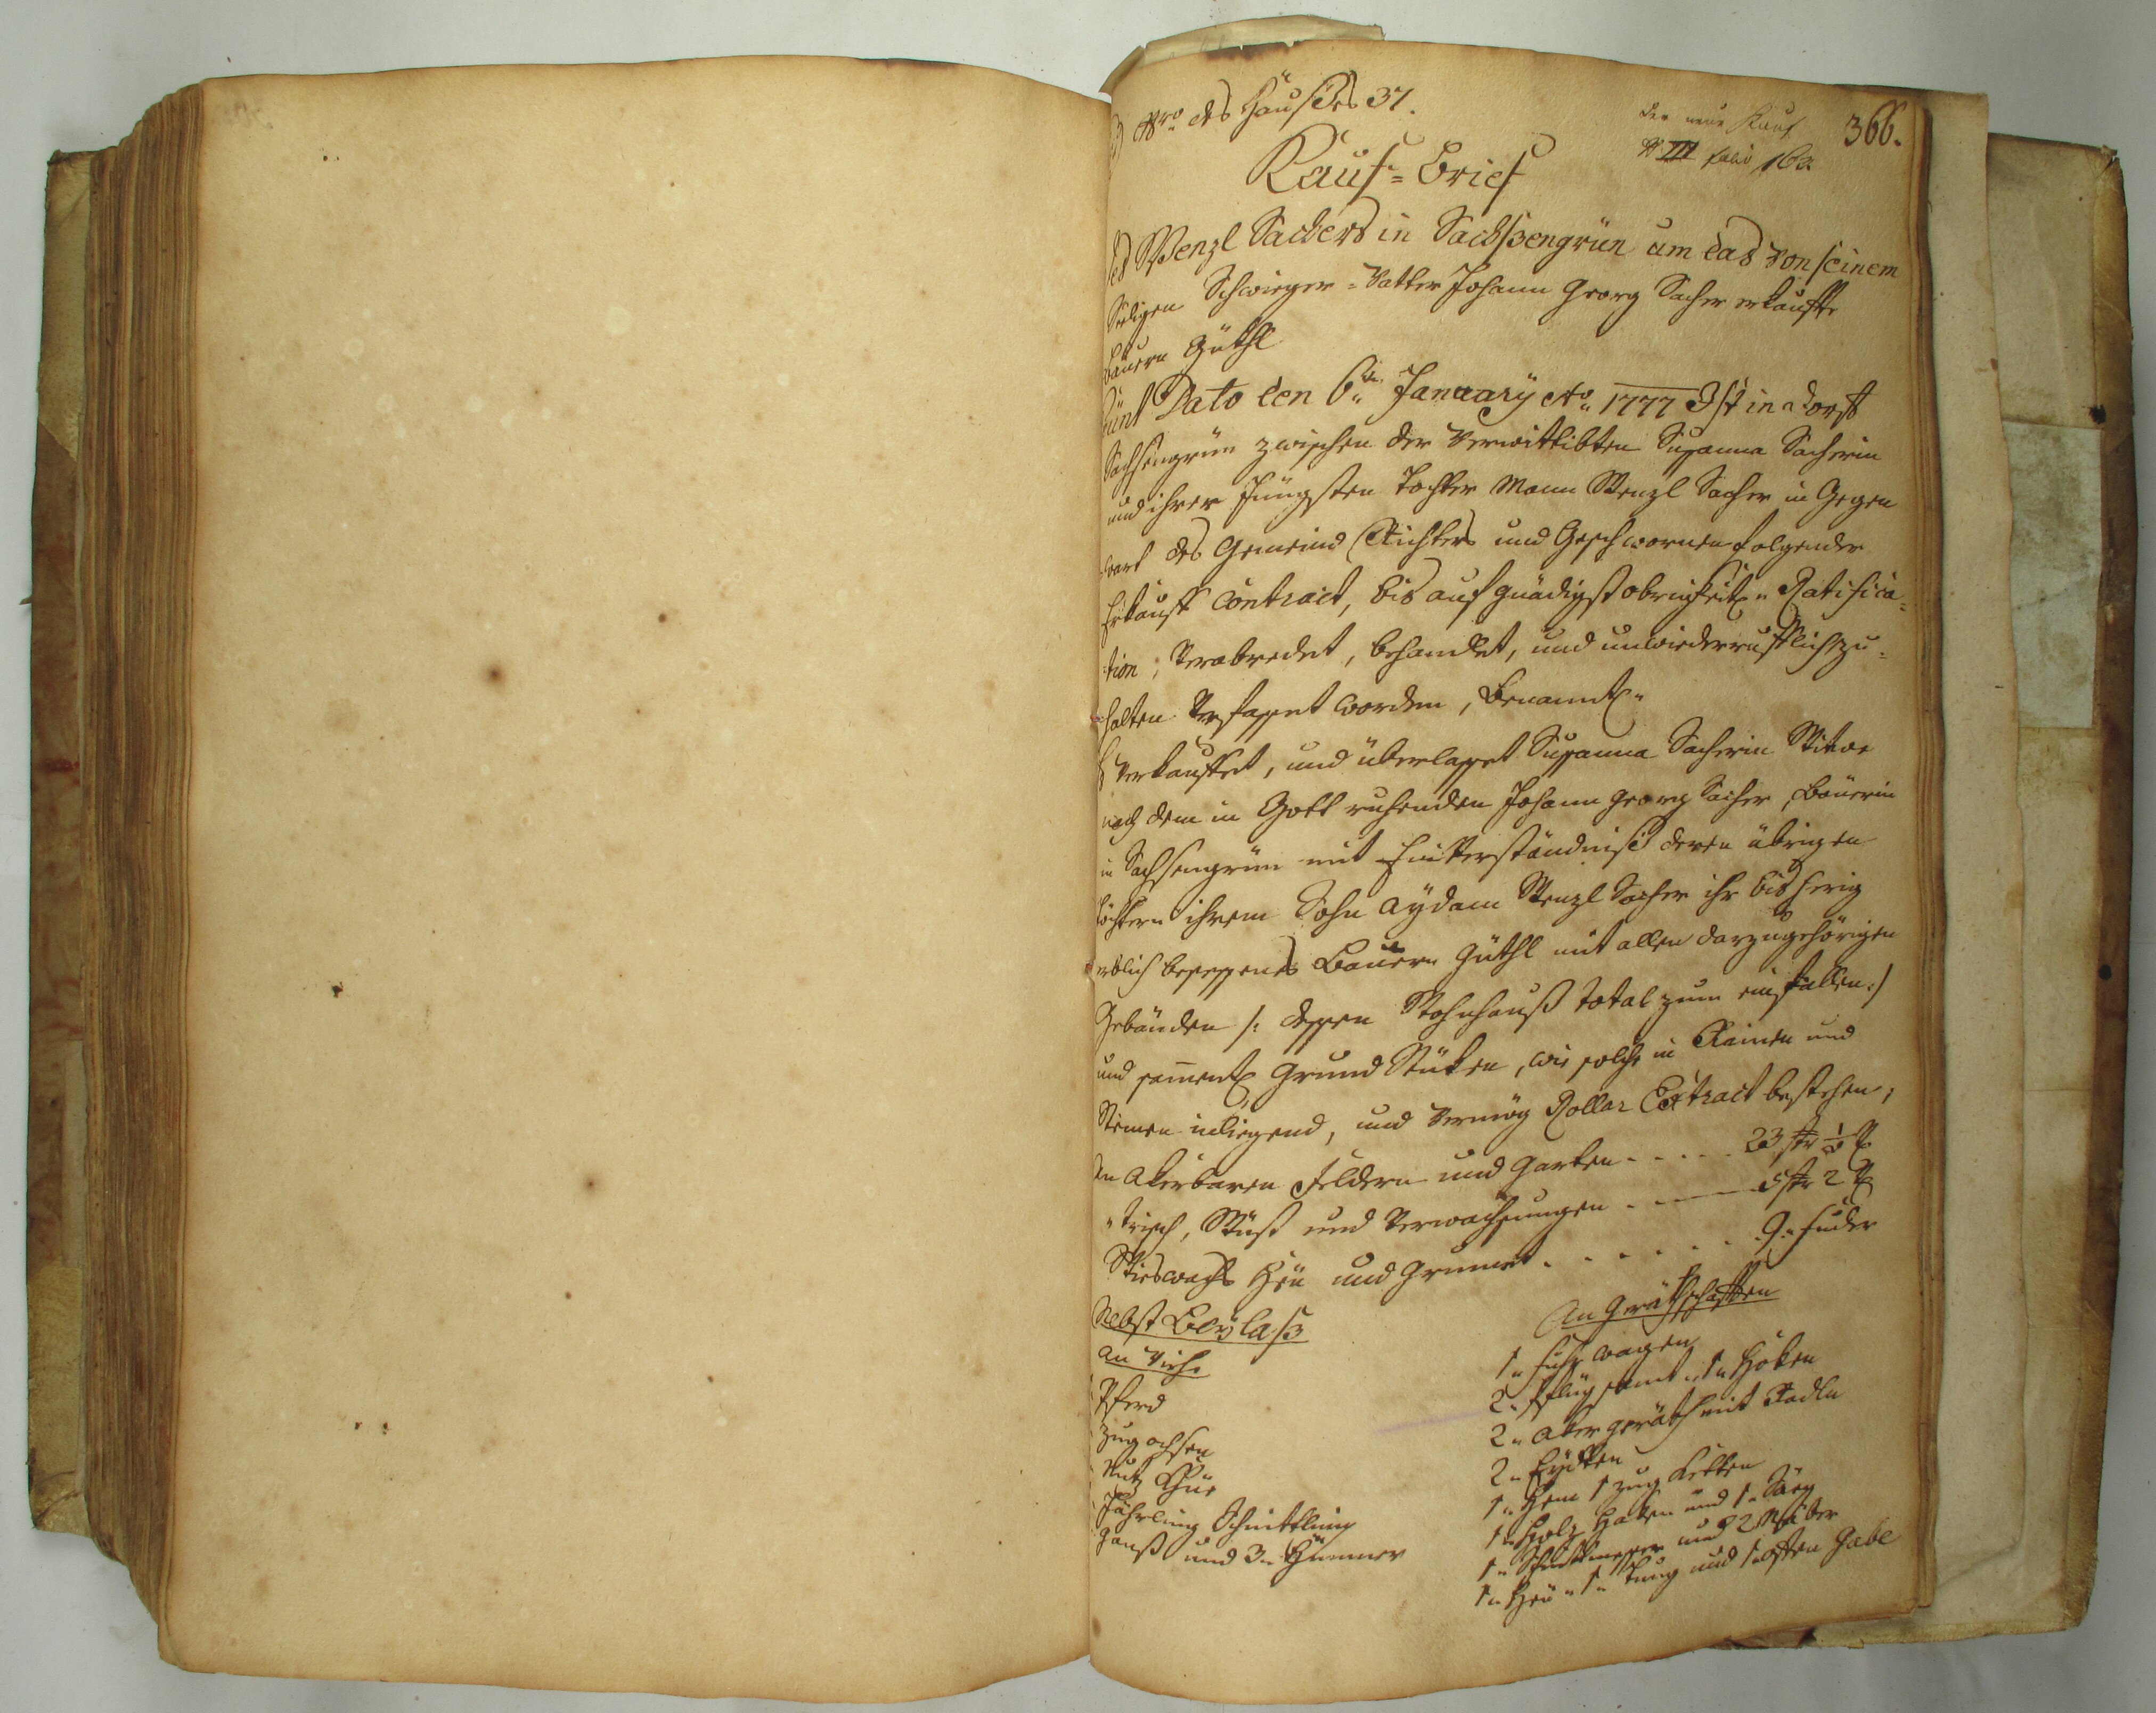 Nro des Haußes 37.
der neue Kauf
III folio 160
366.
Kauf-Brief
des Wenzl Sachers in Sachßengrün um das von seinem
Seeligen Schwieger-Vatter Johann Georg Sacher erkauffte
Bauern Güthl
Heünt Dato den 6ten January Ao 1777 Ist in Dorff
Sachsengrün zwischen der Verwittibten Susanna Sacherin
und ihrer Jüngsten Tochter Mann Wenzl Sacher in Gegen
wart des Gemeind Richters und Geschwornen folgender
Erkauff Contract, bis auf gnädigst obrigkeitl. Ratifica-
tion, Verabredet, behandlet, und unwiederrufflich zu-
halten Verfasset worden, Benanntl.
Verkauffet, und überlasset Susanna Sacherin Wittwe
nach dem in Gott ruhenden Johann Georg Sacher, Bäuerin
in Sachsengrün mit Einverständniß deren übrigen
Töchtern ihrem Sohn Aydam Wenzl Sacher ihr bisherig
erblich besessenes Bauern Güthl mit allen darzugehörigen
Gebäuden /: dessen Wohnhauß total zum einfallen :/
und sammentl. Grund Stüken, wie solche in Rainen und
Steinen inliegend, und Vermög Rollar Extract bestehen,
An Akerbaren Feldern und Garten . . . . . 23 str ½ V
Trisch, Wüst und Verwachsungen . . . 5 str 2 V
Wieswachs Heu und Grumet . . . . . . 9 Fuder
Nebst Beylaß
An Viehe
Pferd
Zug ochsen
Nutz Küe
Jährling Schnittling
Ganß und 3 Hünner
An Geräthschafften
1 Fuhr wagen
2 Pflug samt 1 Hoken
2 Aker geräth mit Radln
2 Eydten
1 Hem 1 zug Ketten
1 Holz Haken und 1 Säeg
1 Schnittmesser und 2
1 Heu 1 Tung und 1 ofen Gabl